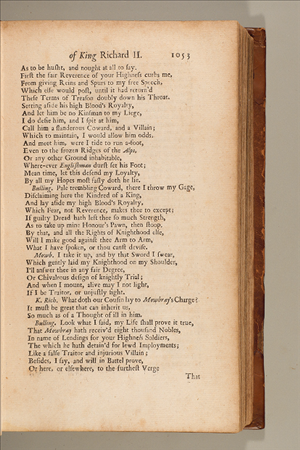 of King Richard II. 1053
As to be husht, and nought at all to say.
First the fair Reverence of your Highness curbs me,
From giving Reins and Spurs to my free Speech,
Which else would post, until it had return'd
These Terms of Treason doubly down his Throat.
Setting aside his high Blood's Royalty,
And let him be no Kinsman to my Liege,
I do defie him, and I spit at him,
Call him a slanderous Coward, and a Villain;
Which to maintain, I would allow him odds,
And meet him, were I tide to run a-foot,
Even to the frozen Ridges of the Alps,
Or any other Ground inhabitable,
Where-ever Englishman durst set his Foot;
Mean time, let this defend my Loyalty,
By all my Hopes most falsly doth he lie.
Bulling. Pale trembling Coward, there I throw my Gage,
Disclaiming here the Kindred of a King,
And lay aside my high Blood's Royalty,
Which Fear, not Reverence, makes thee to except;
If guilty Dread hath left thee so much Strength,
As to take up mine Honour's Pawn, then stoop.
By that, and all the Rights of Knighthood else,
Will I make good against thee Arm to Arm,
What I have spoken, or thou canst devise.
Mowb. I take it up, and by that Sword I swear,
Which gently laid my Knighthood on my Shoulder,
I'll answer thee in any fair Degree,
Or Chivalrous design of knightly Trial;
And when I mount, alive may I not light,
If I be Traitor, or unjustly fight.
K. Rich. What doth our Cousin lay to Mowbray's Charge?
It must be great that can inherit us,
So much as of a Thought of ill in him.
Bulling. Look what I said, my Life shall prove it true,
That Mowbray hath receiv'd eight thousand Nobles,
In name of Lendings for your Highness Soldiers,
The which he hath detain'd for lewd Imployments;
Like a false Traitor and injurious Villain;
Besides, I say, and will in Battel prove,
Or here, or elsewhere, to the furthest Verge
That